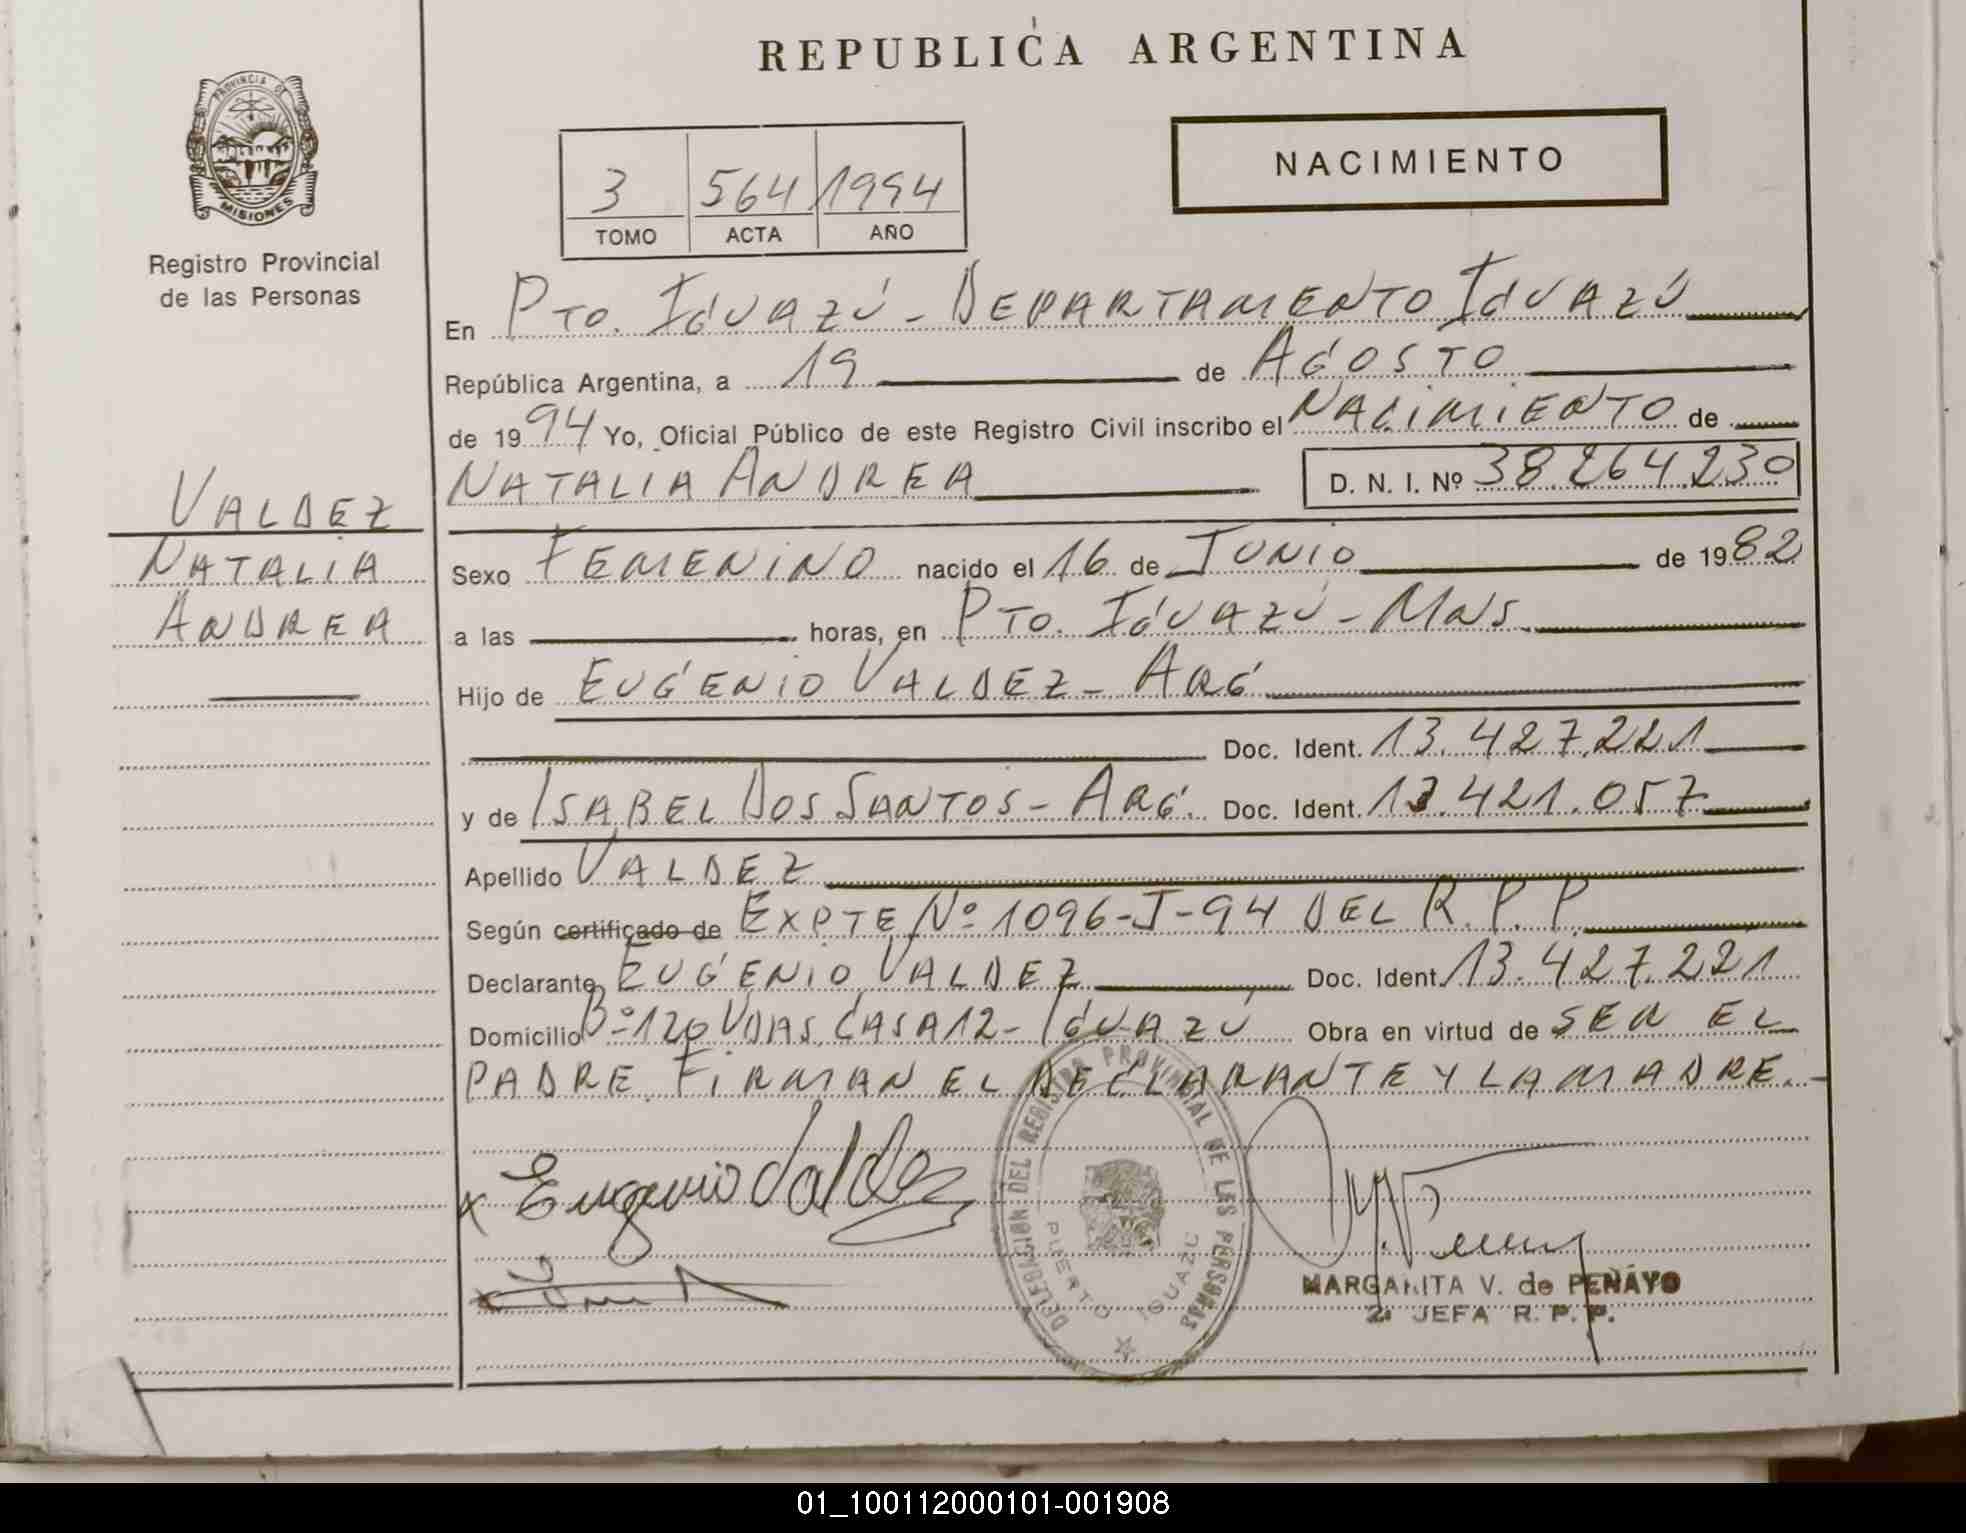 REPUBLICA ARGENTINA
PROVINCIA DE
MISIONES
Registro Provincial
de las Personas
NACIMIENTO
3 564 1994
TOMO ACTA AÑO
En PTO. IGUAZÚ - DEPARTAMENTO IGUAZÚ
República Argentina, a 19 de AGOSTO
de 1994 Yo, Oficial Público de este Registro Civil inscribo el NACIMIENTO de
NATALIA ANDREA D. N. I. Nº 38.264.230
VALDEZ
NATALIA
ANDREA
Sexo FEMENINO nacido el 16 de JUNIO de 1982
a las horas, en PTO. IGUAZÚ - MNS.
Hijo de EUGENIO VALDEZ - ARG
Doc. Ident. 13.427.221
y de ISABEL DOS SANTOS - ARG. Doc. Ident. 13.421.057
Apellido VALDEZ
Según certificado de EXPTE Nº 1096-J-94 DEL R.P.P.
Declarante EUGENIO VALDEZ Doc. Ident. 13.427.221
Domicilio Bº 120 VDAS. CASA 12 - IGUAZU Obra en virtud de SER EL
PADRE. FIRMAN EL DECLARANTE Y LA MADRE.-
x Eugenio Valdez
DELEGACION DEL REGISTRO PROVINCIAL DE LAS PERSONAS
PUERTO IGUAZU
MARGARITA V. de PENAYO
2ª JEFA R. P. P.
01_100112000101-001908